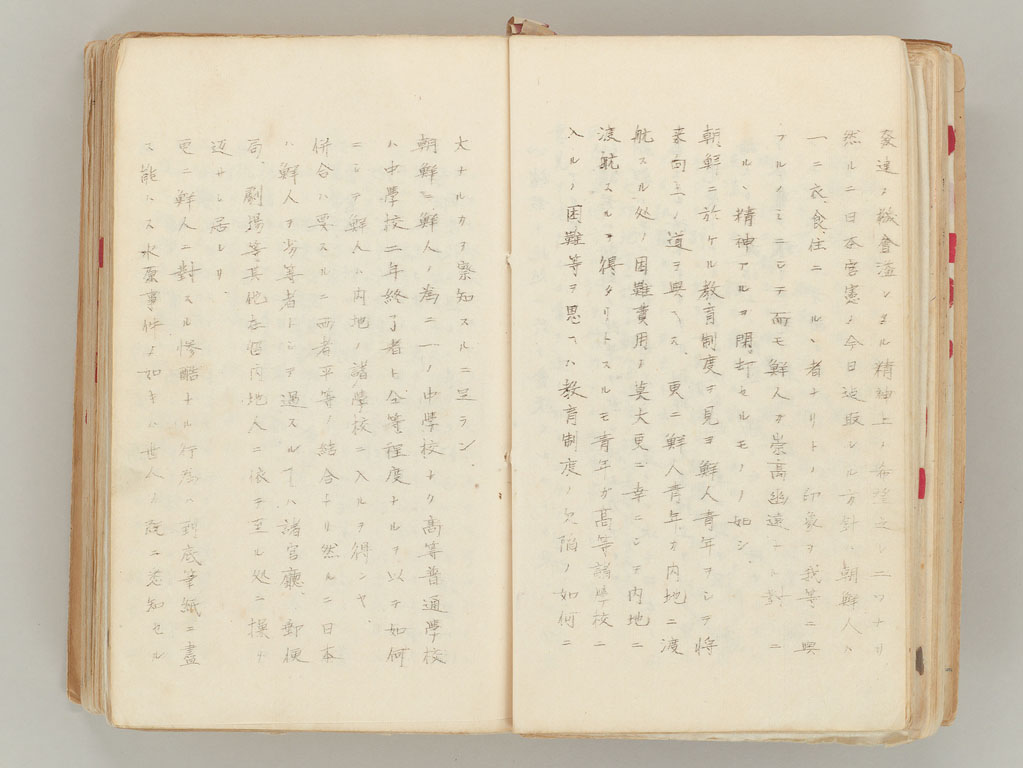 發達ノ機會渣ンヨリ精神上ノ希望文レ二ツナリ
然ルニ日本官憲ノ今日迠取レル方針ハ朝鮮人ハ
一ニ衣、食、住ニ ルヽ者ナリトノ印象ヲ我等ニ與
フルノミニシテ而モ鮮人ガ崇高幽遠ナル 對 ニ
ルヽ精神アルヲ閉封セルモノヽ如シ
朝鮮ニ於ケル教育制度ヲ見ヨ鮮人青年ヲシテ將
来向上ノ道ヲ與ヘス、更ニ鮮人青年ガ内地ニ渡
航スル処ノ困難費用ノ莫大更ニ幸ニシテ内地ニ
渡航スルヿ得タリトスルモ青年ガ高等諸學校ニ
入ルノ困難等ヲ思ヘハ教育制度ノ欠陥ノ如何ニ
大ナルカヲ察知スルニ足ラン
朝鮮ニ鮮人ノ為ニ一ノ中學校ナク高等普通學校
ハ中學校二年終了者ト仝等程度ナルヲ以テ如何
ニシテ鮮人ハ内地ノ諸學校ニ入ルヲ得ンヤ
併合ハ要スルニ両者平等ノ結合ナリ然ルニ日本
ハ鮮人ヲ劣等者トシテ過スルヿハ諸官廳、郵便
局、劇場等其他在住内地人ニ依テ至ル処ニ操
返サレ居レリ
更ニ鮮人ニ對スル惨酷ナル行為ハ到底筆紙ニ盡
ス能ハス水原事件ノ如キハ世人ノ既ニ悉知セル